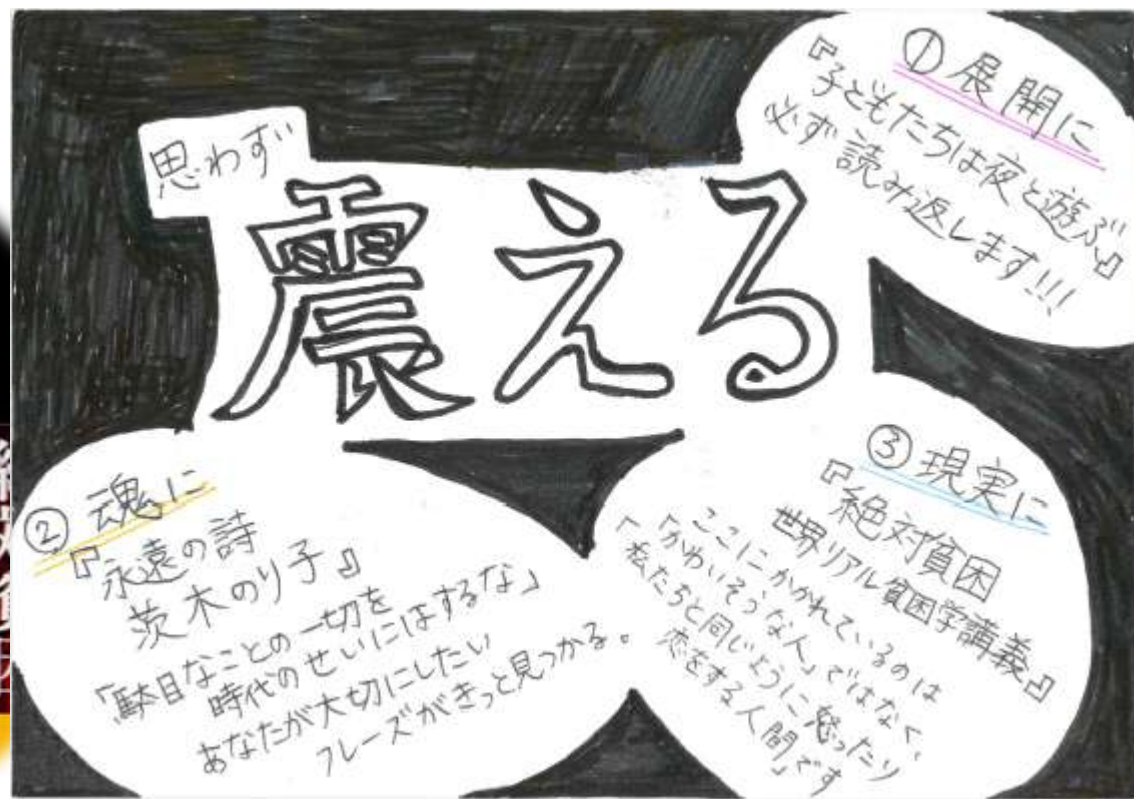 思わず
震える
①展開に
『子どもたちは夜と遊ぶ』
必ず読み返します!!!
②魂に
『永遠の詩
茨木のり子』
「駄目なことの一切を
時代のせいにはするな」
あなたが大切にしたい
フレーズがきっと見つかる。
③現実に
『絶対貧困
世界リアル貧困学講義』
ここにかかれているのは
「かわいそうな人」ではなく、
「私たちと同じように怒ったり
恋をする人間」です